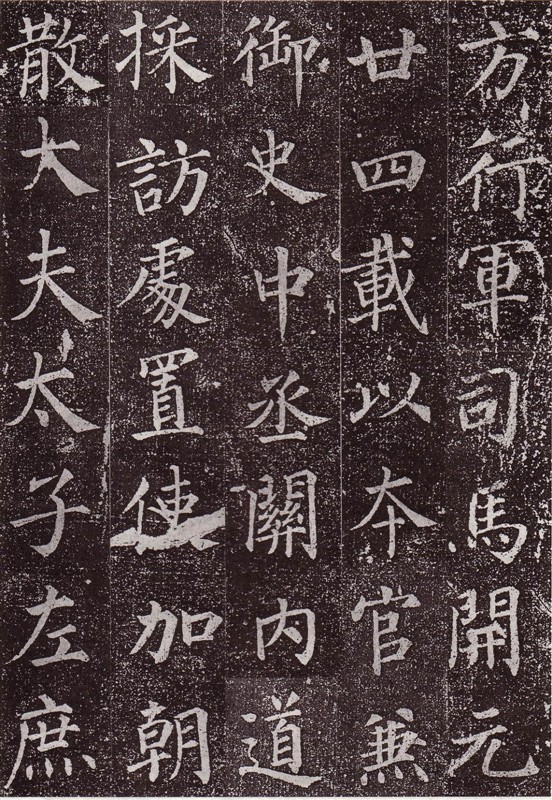 方行軍司馬開元
廿四載以本官兼
御史中丞關內道
採訪處置使加朝
散大夫太子左庶